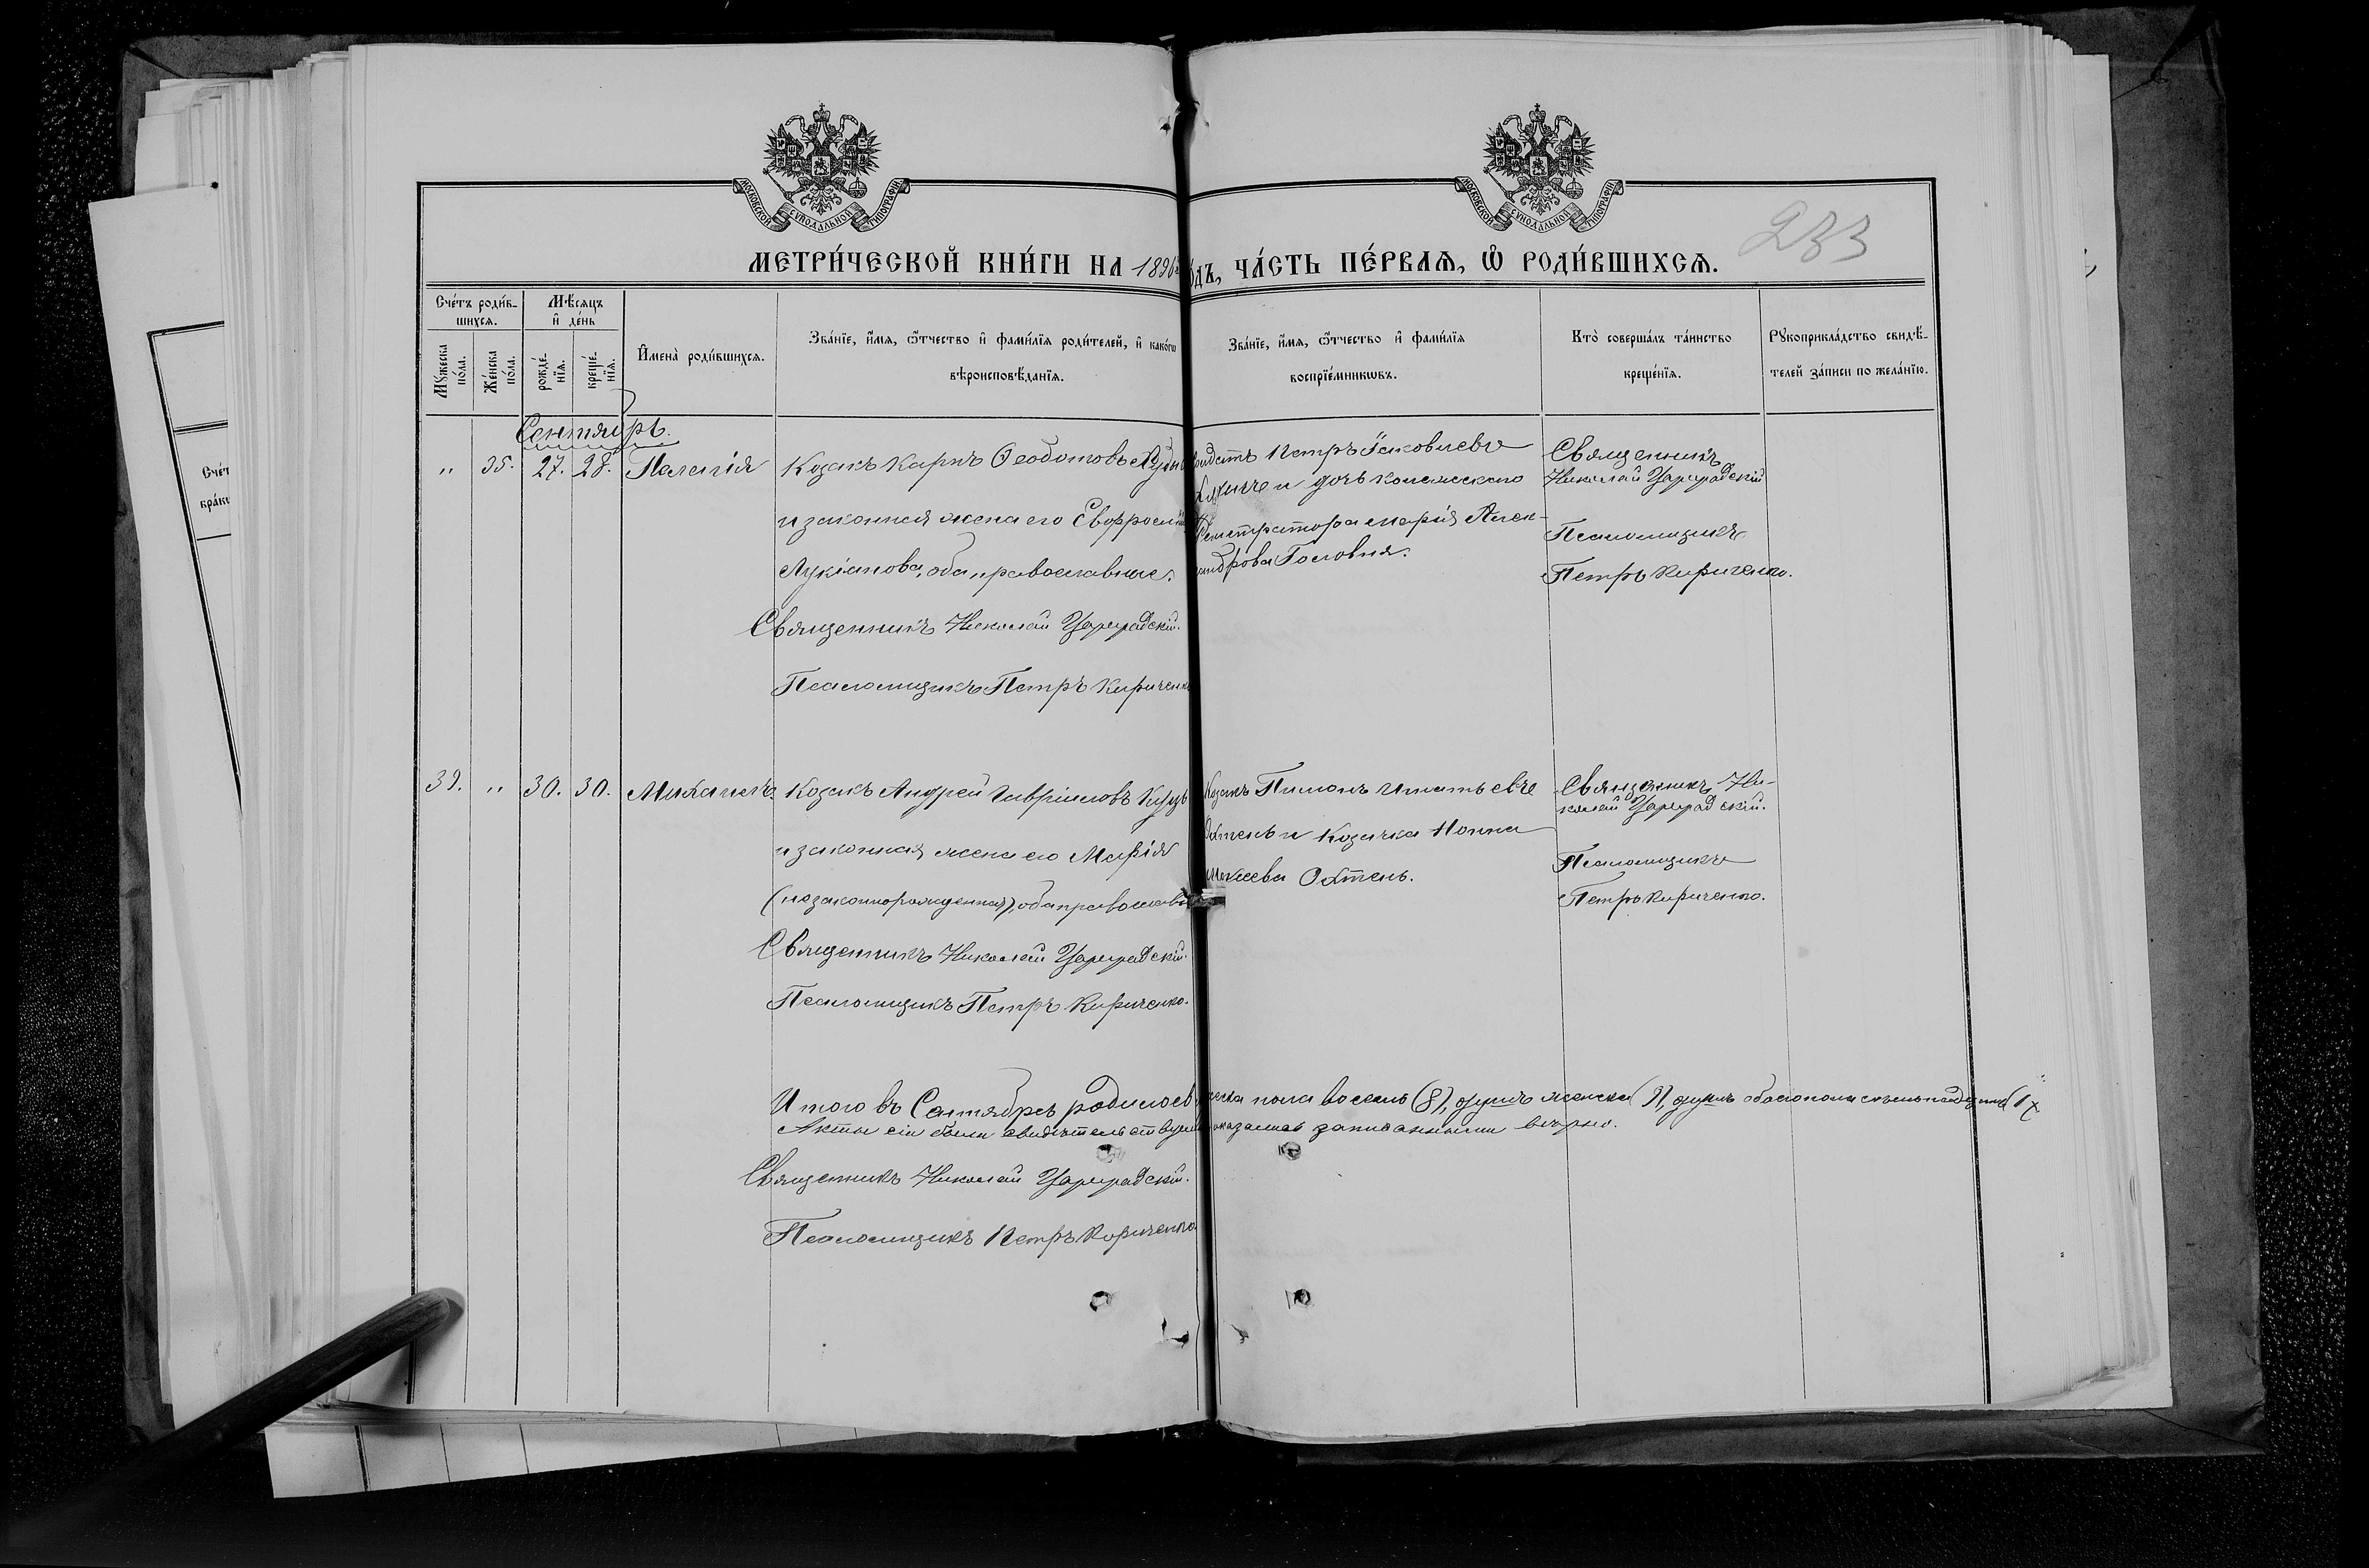 МОСКОВСКОЙ СѴНОДАЛЬНОЙ ТИПОГРАФІИ
МОСКОВСКОЙ СѴНОДАЛЬНОЙ ТИПОГРАФІИ
233
МЕТРИ́ЧЕСКОЙ КНИ́ГИ НА 1896
ДЪ, ЧА́СТЬ ПЕ́РВАѦ, Ѡ҆ РОДИ́ВШИХСѦ.
Сче́тъ роди́в-
шихсѧ.
Мѣ́сѧцъ
и҆ де́нь
Мꙋ́жеска
по́ла.
Же́нска
по́ла.
рожде́-
нїѧ.
креще́-
нїѧ.
И҆мена̀ роди́вшихсѧ.
Зва́нїе, и҆́мѧ, ѻ҆́тчество и҆ фами́лїѧ роди́телей, и҆ како́гѡ
вѣроисповѣ́данїѧ.
Зва́нїе, и҆́мѧ, ѻ҆́тчество и҆ фами́лїѧ
воспрїе́мникѡвъ.
Кто̀ соверша́лъ та́инство
креще́нїѧ.
Рꙋкоприкла́дство свидѣ́-
телей за́писи по жела́нїю.
Сентябрь.
" 35. 27. 28. Пелагія
Козакъ Карпъ Ѳеодотовъ
и законная жена его Евфросинія
Лукіанова, оба православные.
Священникъ Николай Цареградскій.
Псаломщикъ Петръ Кириченко
Петръ Іаковлевъ
и дочь коллежскаго
Регистратора Марія Алек-
андрова Головня.
Священникъ
Николай Цареградскій
Псаломщикъ
Петръ Кириченко.
39. " 30. 30. Михаилъ.
Козакъ Андрей Гавріиловъ
и законная жена его Марія
(незаконнорожденная), оба православн
Священникъ Николай Цареградскій.
Псаломщикъ Петръ Кириченко.
Козакъ Пименъ Игнатьевъ
Охтень и Козачка Нонна
Охтень.
Священникъ Ни-
колай Цареградскій.
Псаломщикъ
Петръ Кириченко.
Итого въ Сентябрѣ родилось
ческа пола восемь (8), душъ женска душъ обоего пола
Акты сіи были свидѣтельствуемы
оказались записанными вѣрно.
Священникъ Николай Цареградскій.
Псаломщикъ Петръ Кириченко
Сче́т
бра́к